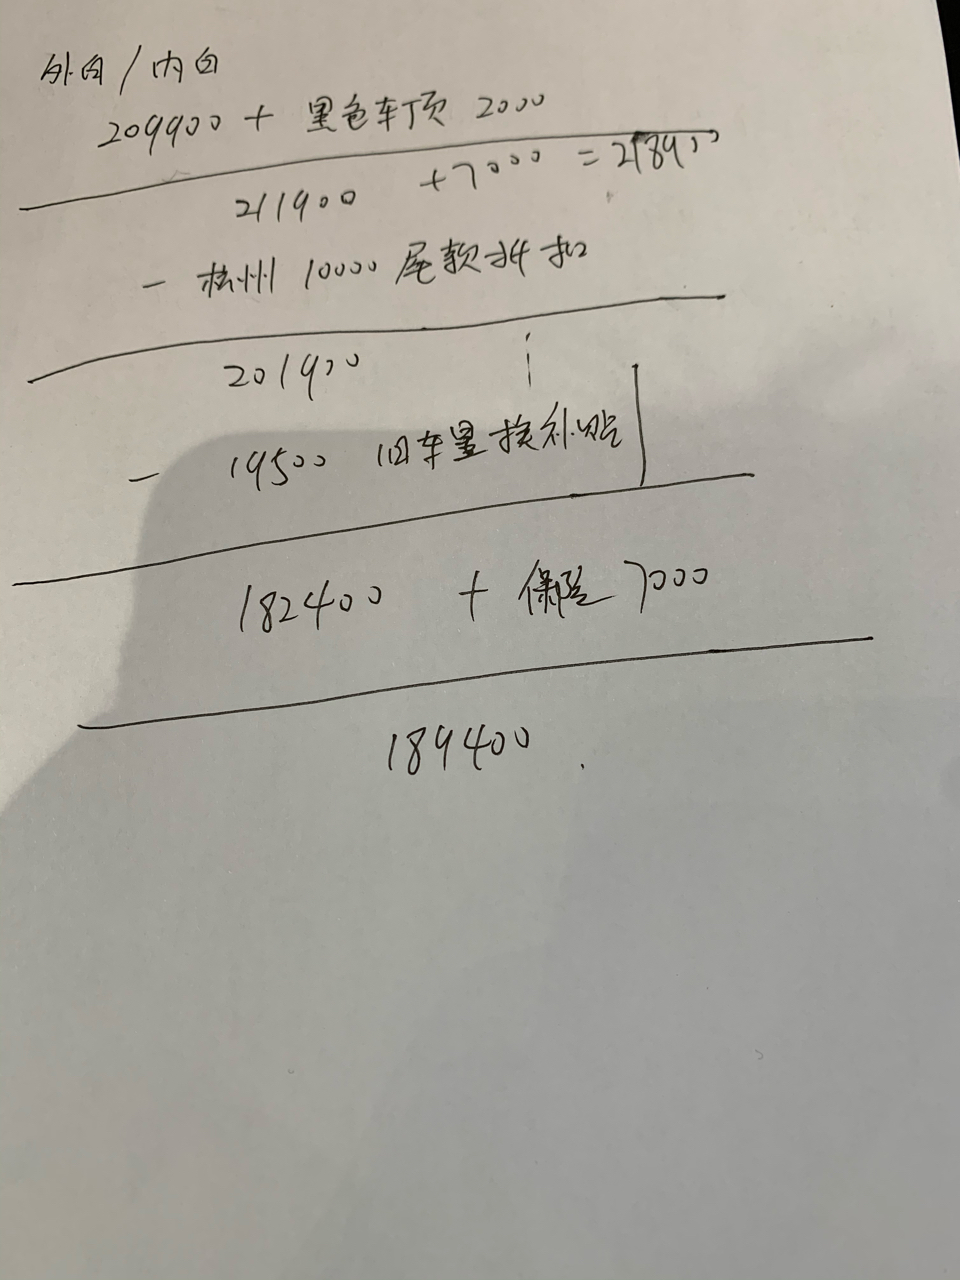 外白/内白
209900 + 黑色车顶 2000
211900 +7000 = 218900
- 杭州 10000 尾款折扣
201900
- 19500 旧车置换补贴
182400 + 保险 7000
189400